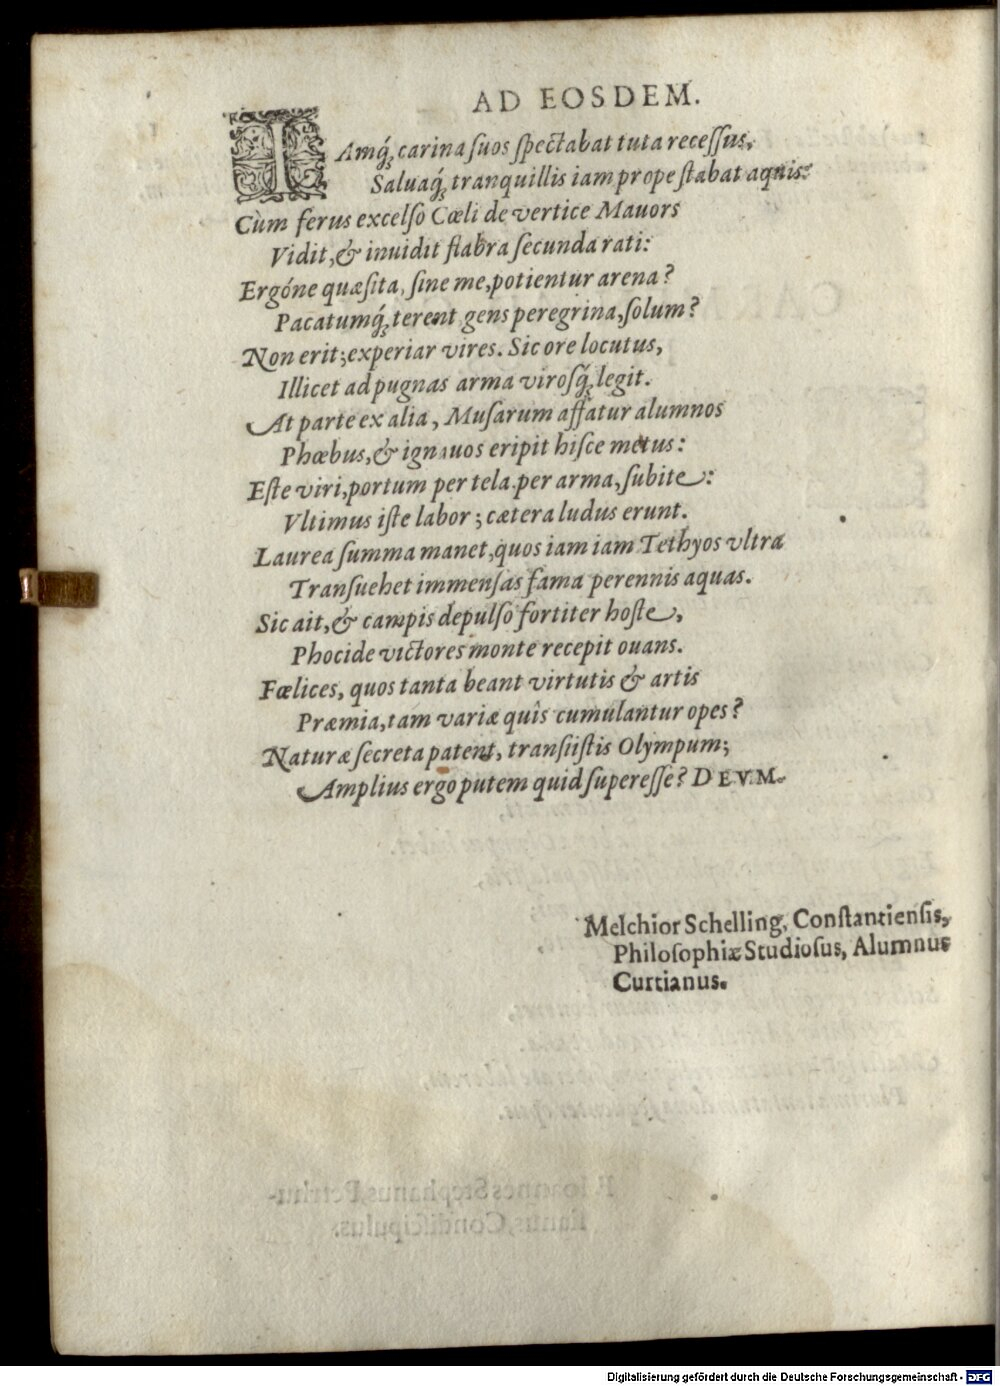 AD EOSDEM.
IAmq́; carina suos spectabat tuta recessus,
Saluaq́; tranquillis iam prope stabat aquis:
Cùm ferus excelso Cœli de vertice Mauors
Vidit, & inuidit flabra secunda rati:
Ergóne quæsita, sine me, potientur arena?
Pacatumq́; terent gens peregrina, solum?
Non erit; experiar vires. Sic ore locutus,
Illicet ad pugnas arma virosq́; legit.
At parte ex alia, Musarum affatur alumnos
Phœbus, & ignauos eripit hisce metus:
Este viri, portum per tela per arma, subite:
Vltimus iste labor; cætera ludus erunt.
Laurea summa manet, quos iam iam Tethyos vltra
Transuehet immensas fama perennis aquas.
Sic ait, & campis depulso fortiter hoste,
Phocide victores monte recepit ouans.
Fœlices, quos tanta beant virtutis & artis
Præmia, tam variæ quîs cumulantur opes?
Naturæ secreta patent, transiistis Olympum;
Amplius ergo putem quid superesse? DEVM.
Melchior Schelling, Constantiensis,
Philosophiæ Studiosus, Alumnus
Curtianus.
Digitalisierung gefördert durch die Deutsche Forschungsgemeinschaft - DFG